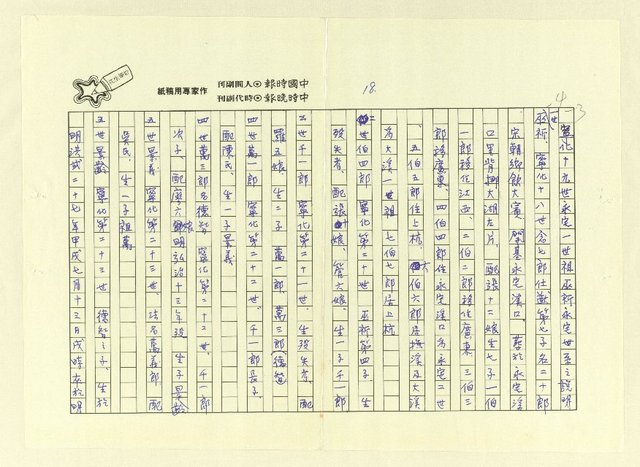 中國時報⊙人間副刊
中時晚報⊙時代副刊
作家專用稿紙
18
4
3
寧化十九世永定一世祖巫祈永定世系之說明
巫祈、寧化十八世念七郎仕獻第七子名二十郎
宋朝鄉飲大賓 開基永定溪口 葬於永定溪
口里背 大湖 片 配張十二娘生七子一伯
一郎移住江西、二伯二郎移住廣東 三伯三
郎移廣東、四伯四郎住永定溪口為永定二世
五伯五郎住上杭 六伯六郎居撫溪及大溪
為大溪一世祖 七伯七郎居上杭
二世伯四郎 寧化第二十世 巫祈第四子 生
歿失考、配張 娘、管六娘、生一子千一郎
三世千一郎 寧化第二十一世、生歿失考、配
羅五娘 生二子 萬一郎、萬三郎(德智
四世萬一郎 寧化第二十二世、千一郎長子、
配陳氏、生一子景義
四世萬三郎名德智 寧化第二十二世、千一郎
次子、配廖六娘 明弘治十三年歿 生子景齡
五世景義 寧化第二十三世、法名萬義郎 配
吳氏、生一子祖萬
五世景齡 寧化第二十三世 德智之子、生於
明洪武二十七年甲戌七月十三日戌時卒於明